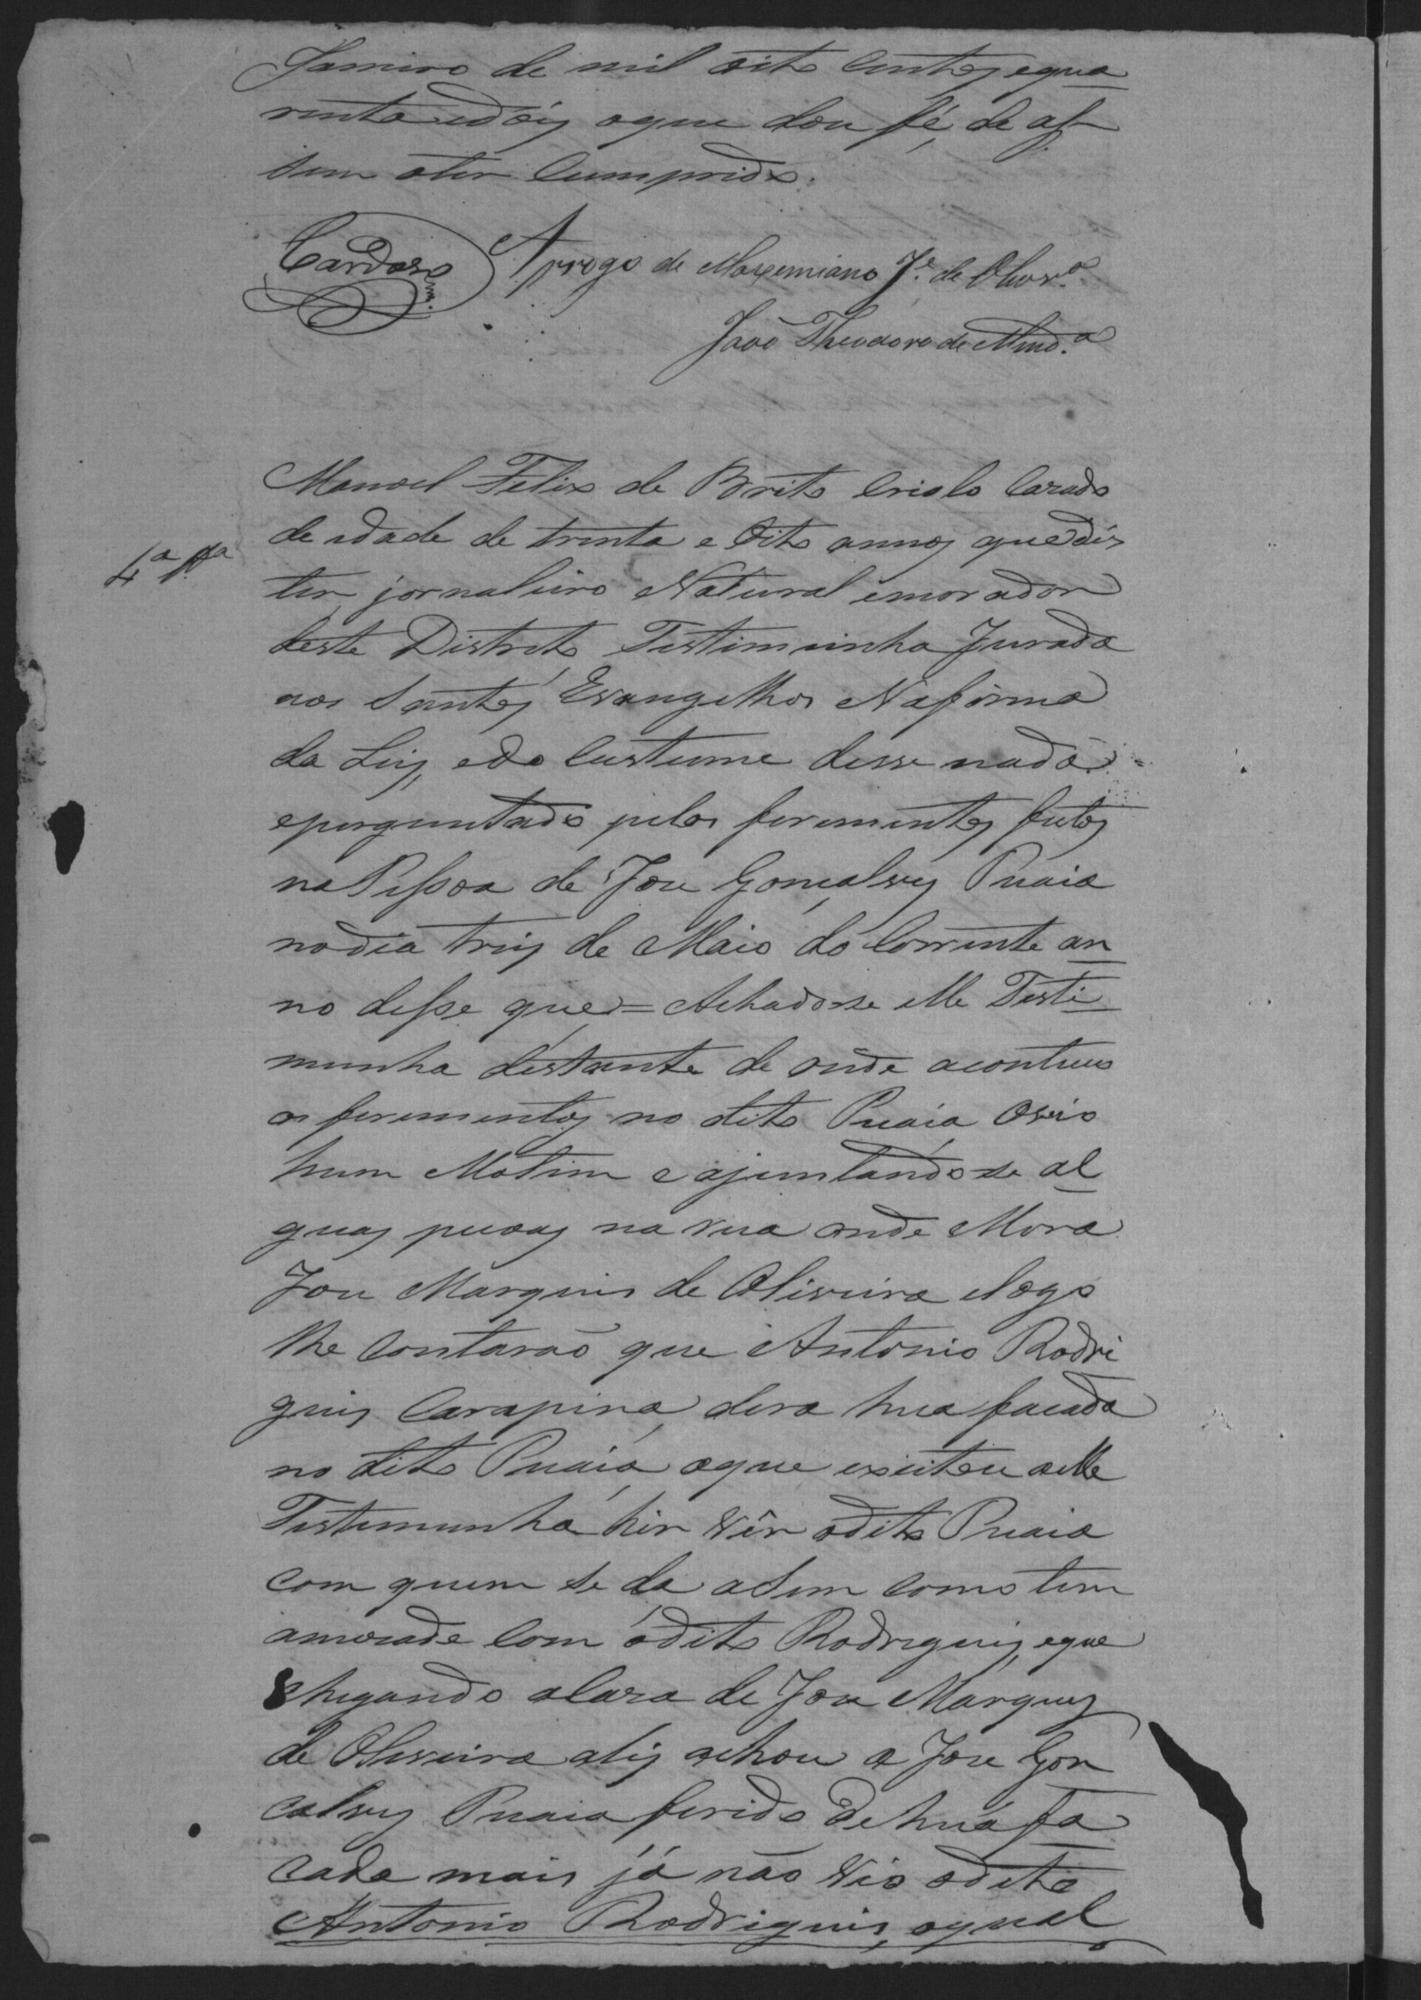 Janeiro de mil oito centos equa
renta edois oque dou fé, de aS
sim oter Cumprido.
Cardozo Arrogo de Maxemiano Je. de Olivra.
João Theodoro de Mirdª
Manoel Felix de Brito Criolo Cazado
4ª Ttª
de idade de trinta e Oito annos quediz
ter jornaleiro Natural emorador
deste Districto Testimuinha Jurada
aos Santos Evangelhos Naforma
da Ley, edo Custume disse nada
eperguntado pelos ferementos feitos
naPessoa de Joze Gonçalves Puaia
nodia treis de Maio do Corrente an
no desse que = Achadose elle Testi
munha distante de onde aconteceo
os ferementos no dito Puaia Ovio
hum Motim e ajuntandose al
guas pecoas na rua onde Mora
Joze Marques de Oliveira elogo
lhe Contarão que Antonio Rodri
gues Carapina dera hua facada
no dito Puaia oque exzitou aelle
Testemunha hir Vêr odito Puaia
com quem se da asim como tem
amizade Com odito Rodrigues, eque
Chegando aCaza de Joze Marques
de Oliveira ahy achou a Joze Gon
calves Puaia ferido de huá fa
cada mais já não Vio odito
Antonio Rodrigues, oqual